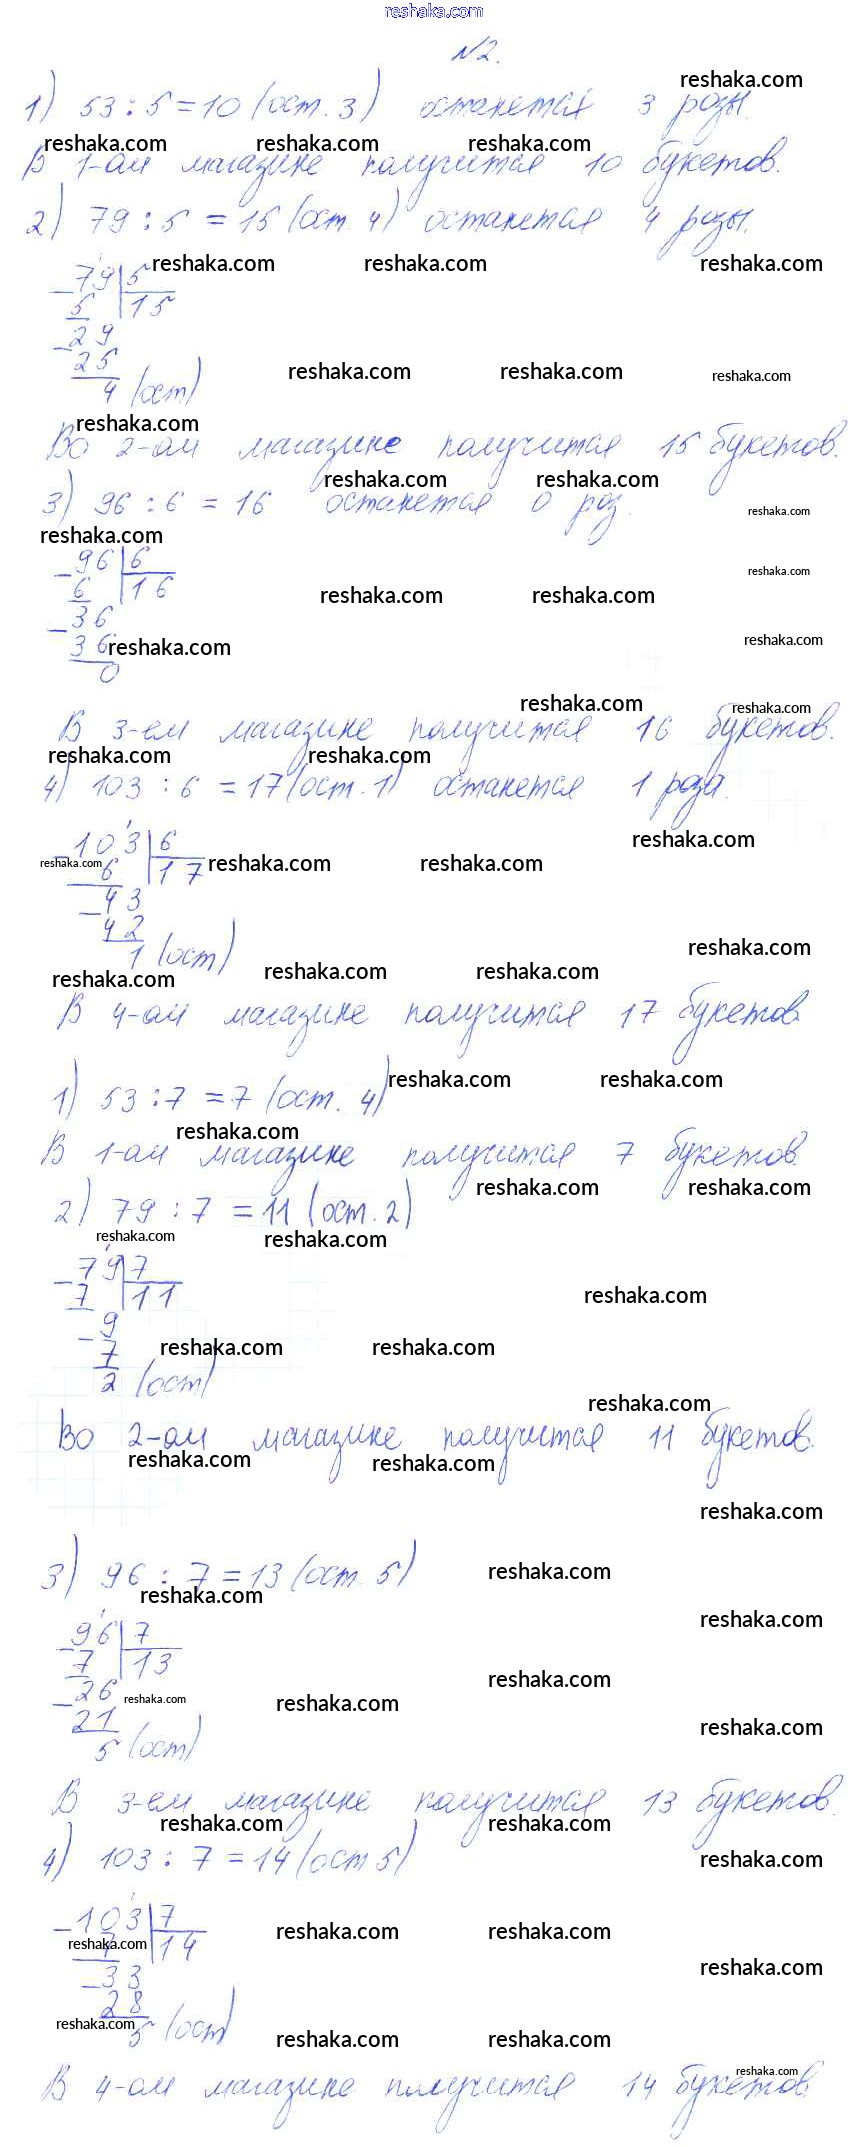 reshaka.com
№2.
1) 53 : 5 = 10 (ост. 3) останется 3 розы.
В 1-ом магазине получится 10 букетов.
2) 79 : 5 = 15 (ост. 4) останется 4 розы.
79 5
5 15
29
25
4 (ост)
Во 2-ом магазине получится 15 букетов.
3) 96 : 6 = 16 останется 0 роз.
96 6
6 16
36
36
0
В 3-ем магазине получится 16 букетов.
4) 103 : 6 = 17 (ост. 1) останется 1 роза.
103 6
6 17
43
42
1 (ост)
В 4-ом магазине получится 17 букетов.
1) 53 : 7 = 7 (ост. 4)
В 1-ом магазине получится 7 букетов.
2) 79 : 7 = 11 (ост. 2)
79 7
7 11
9
7
2 (ост)
Во 2-ом магазине получится 11 букетов.
3) 96 : 7 = 13 (ост. 5)
96 7
7 13
26
21
5 (ост)
В 3-ем магазине получится 13 букетов.
4) 103 : 7 = 14 (ост 5)
103 7
7 14
33
28
5 (ост)
В 4-ом магазине получится 14 букетов.